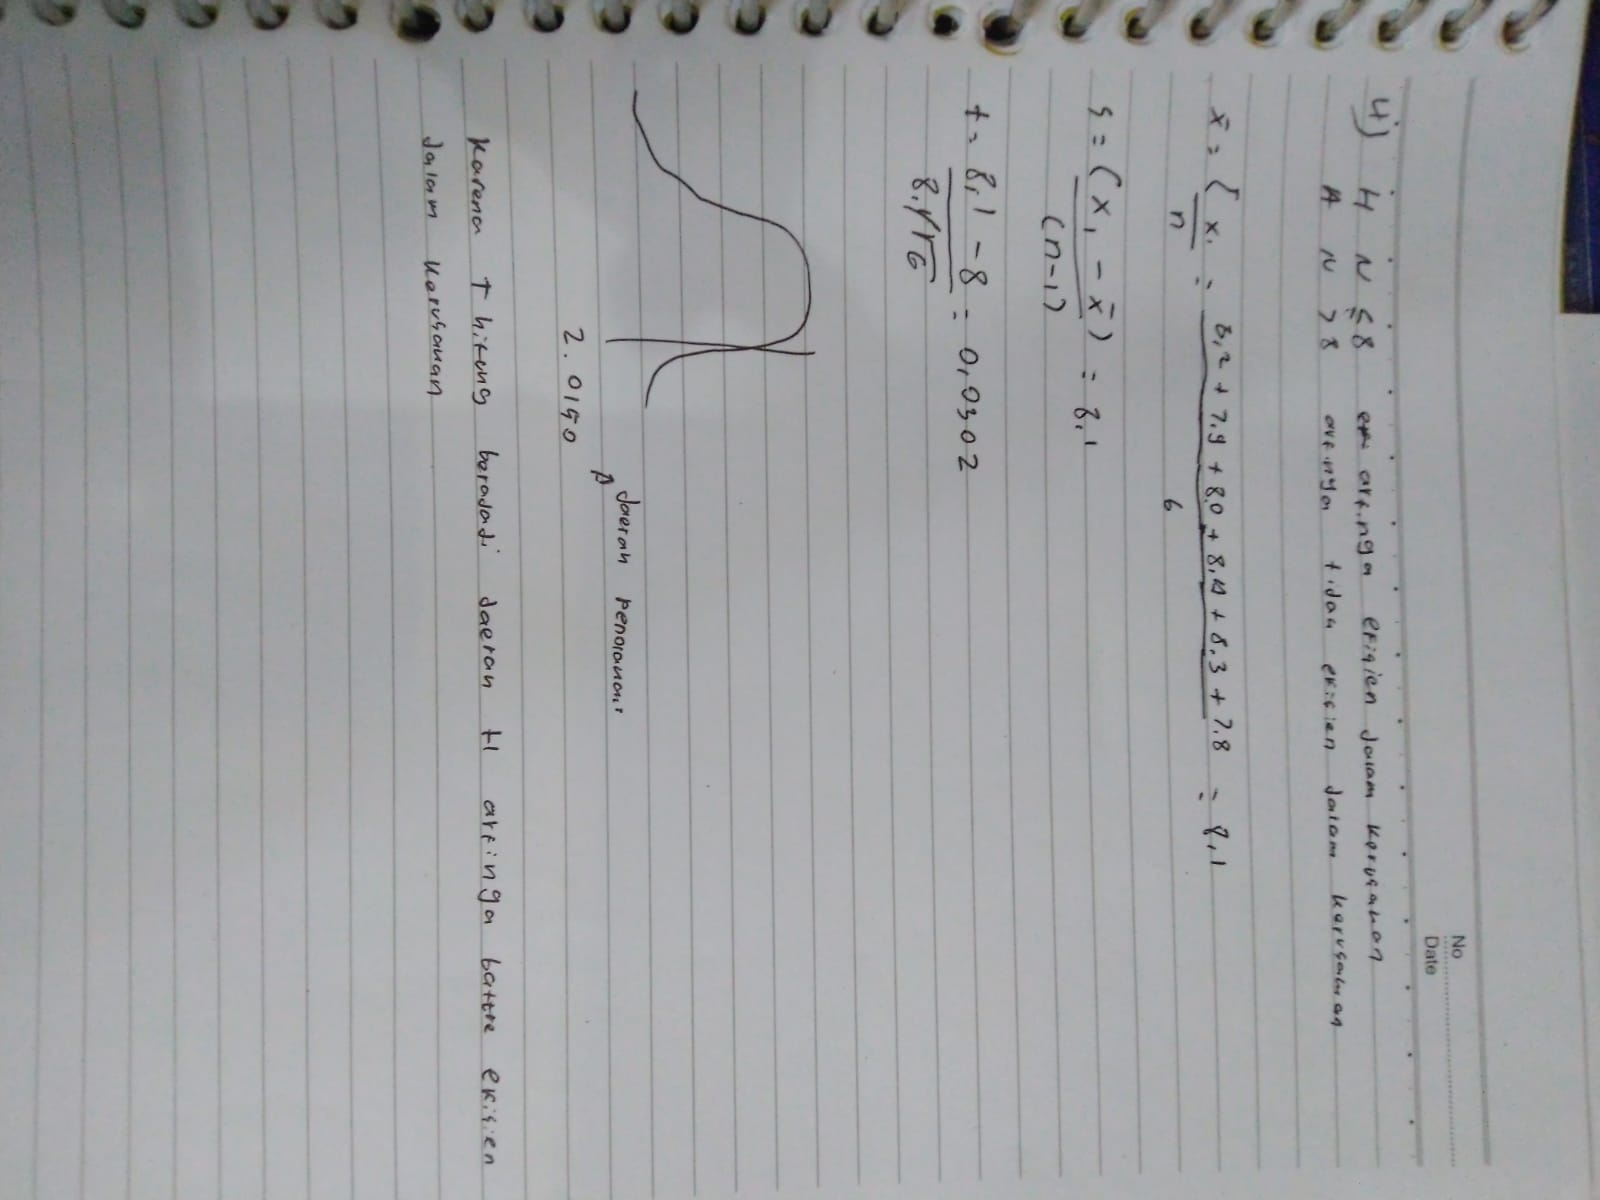 No
Date
4) H N ≤ 8 artinya efisien dalam kerusakan
A N > 8 artinya tidak efisien dalam kerusakan
x̄ = Σ x₁ / n = 8,2 + 7,9 + 8,0 + 8,4 + 8,3 + 7,8 / 6 = 8,1
s = (x₁ - x̄) / (n-1) = 8,1
t = 8,1 - 8 / 8,1/√6 = 0,0302
daerah penolakan
2.0150
karena T hitung beradadi daerah H artinya battre efisien
dalam kerusakan